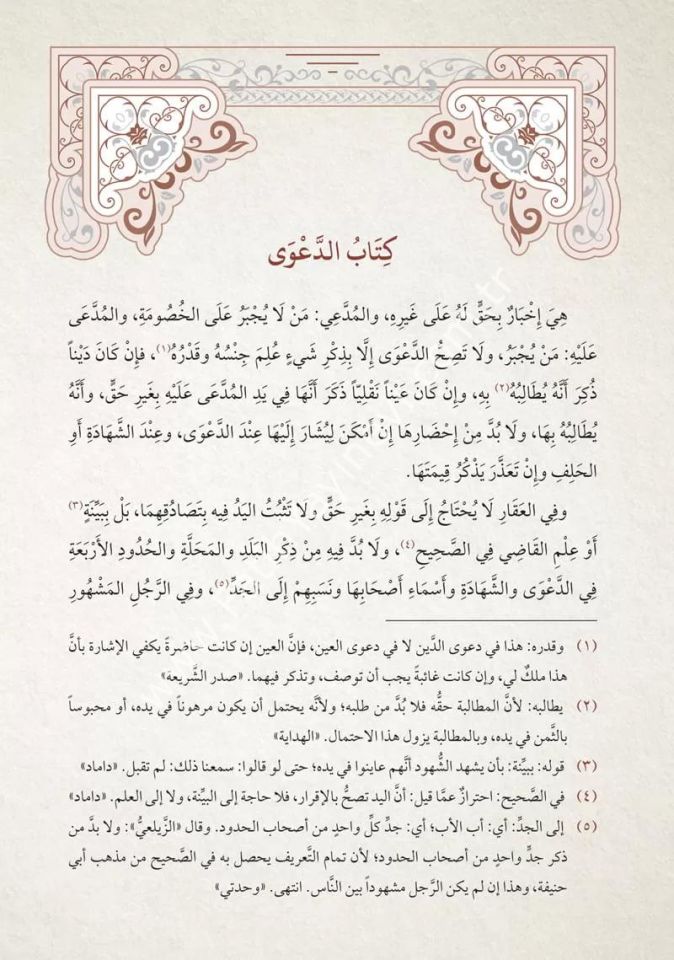 كِتَابُ الدَّعْوَى
هِيَ إِخْبَارٌ بِحَقٍّ لَهُ عَلَى غَيرِهِ، والمُدَّعِي: مَنْ لَا يُجْبَرُ عَلَى الخُصُومَةِ، والمُدَّعَى
عَلَيْهِ: مَنْ يُجْبَرُ، ولَا تَصِحُّ الدَّعْوَى إِلَّا بِذِكْرِ شَيءٍ عُلِمَ جِنْسُهُ وقَدْرُهُ(١)، فإِنْ كَانَ دَيْناً
ذُكِرَ أَنَّهُ يُطَالِبُهُ(٢) بِهِ، وإِنْ كَانَ عَيْناً نَقْلِيّاً ذَكَرَ أَنَّهَا فِي يَدِ المُدَّعَى عَلَيْهِ بِغَيرِ حَقٍّ، وأَنَّهُ
يُطَالِبُهُ بِهَا، ولَا بُدَّ مِنْ إِحْضَارِهَا إِنْ أَمْكَنَ لِيُشَارَ إِلَيْهَا عِنْدَ الدَّعْوَى، وعِنْدَ الشَّهَادَةِ أَوِ
الحَلِفِ وإِنْ تَعَذَّرَ يَذْكُرُ قِيمَتَهَا.
وفِي العَقَارِ لَا يُحْتَاجُ إِلَى قَوْلِهِ بِغَيرِ حَقٍّ ولَا تَثْبُتُ اليَدُ فِيه بِتَصَادُقِهِمَا، بَلْ بِبَيِّنَةٍ(٣)
أَوْ عِلْمِ القَاضِي فِي الصَّحِيحِ(٤)، ولَا بُدَّ فِيهِ مِنْ ذِكْرِ البَلَدِ والمَحَلَّةِ والحُدُودِ الأَرْبَعَةِ
فِي الدَّعْوَى والشَّهَادَةِ وأَسْمَاءِ أَصْحَابِهَا ونَسَبِهِمْ إِلَى الجَدِّ(٥)، وفِي الرَّجُلِ المَشْهُورِ
(١) وقدره: هذا في دعوى الدَّين لا في دعوى العين، فإنَّ العين إن كانت حاضرةً يكفي الإشارة بأنَّ
هذا ملكٌ لي، وإن كانت غائبةً يجب أن توصف، وتذكر فيهما. «صدر الشَّريعة»
(٢) يطالبه: لأنَّ المطالبة حقُّه فلا بُدَّ من طلبه؛ ولأنَّه يحتمل أن يكون مرهوناً في يده، أو محبوساً
بالثَّمن في يده، وبالمطالبة يزول هذا الاحتمال. «الهداية»
(٣) قوله: ببيِّنة: بأن يشهد الشُّهود أنَّهم عاينوا في يده؛ حتى لو قالوا: سمعنا ذلك: لم تقبل. «داماد»
(٤) في الصَّحيح: احترازٌ عمَّا قيل: أنَّ اليد تصحُّ بالإقرار، فلا حاجة إلى البيِّنة، ولا إلى العلم. «داماد»
(٥) إلى الجدِّ: أي: أب الأب؛ أي: جدِّ كلِّ واحدٍ من أصحاب الحدود. وقال «الزَّيلعيُّ»: ولا بدَّ من
ذكر جدِّ واحدٍ من أصحاب الحدود؛ لأن تمام التَّعريف يحصل به في الصَّحيح من مذهب أبي
حنيفة، وهذا إن لم يكن الرَّجل مشهوداً بين النَّاس. انتهى. «وحدتي»